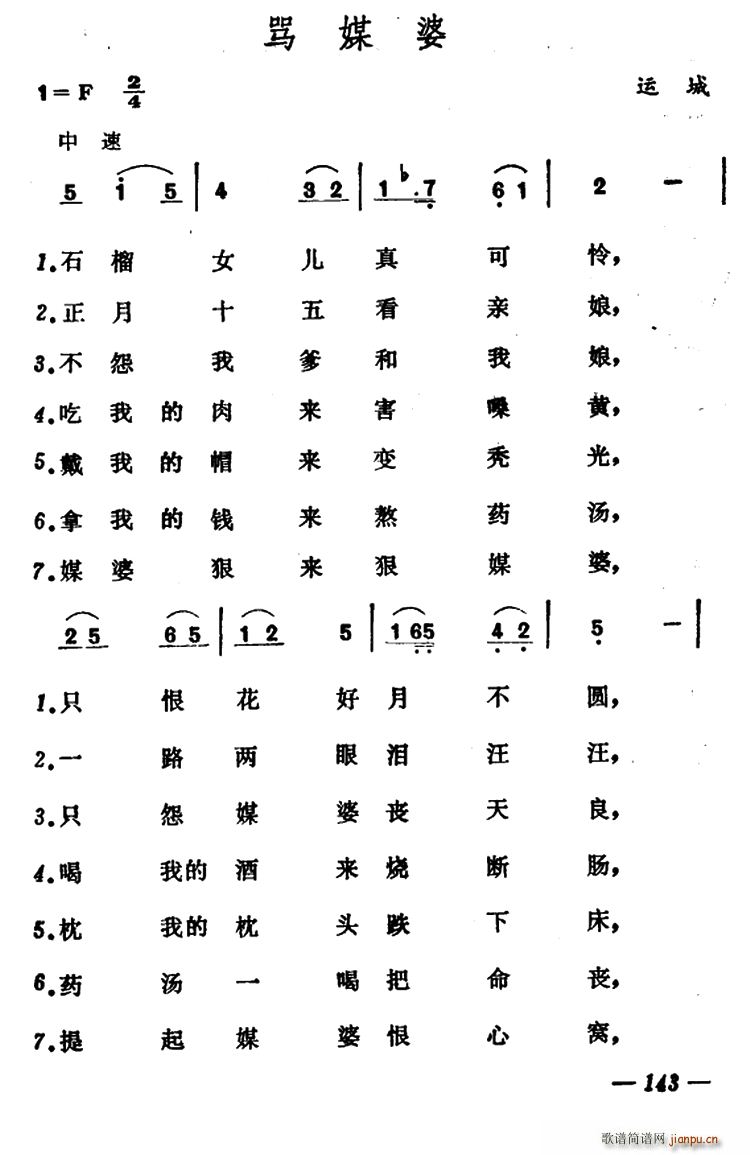 骂媒婆
1=F 2/4 运城
中速
5 i 5 | 4 3 2 | 1 ♭7 6 1 | 2 — |
1.石榴女儿真可怜，
2.正月十五看亲娘，
3.不怨我爹和我娘，
4.吃我的肉来害嗓黄，
5.戴我的帽来变秃光，
6.拿我的钱来熬药汤，
7.媒婆狠来狠媒婆，
2 5 6 5 | 1 2 5 | 1 6 5 4 2 | 5 — |
1.只恨花好月不圆，
2.一路两眼泪汪汪，
3.只怨媒婆丧天良，
4.喝我的酒来烧断肠，
5.枕我的枕头跌下床，
6.药汤一喝把命丧，
7.提起媒婆恨心窝，
— 143 —
歌谱简谱网 jianpu.cn